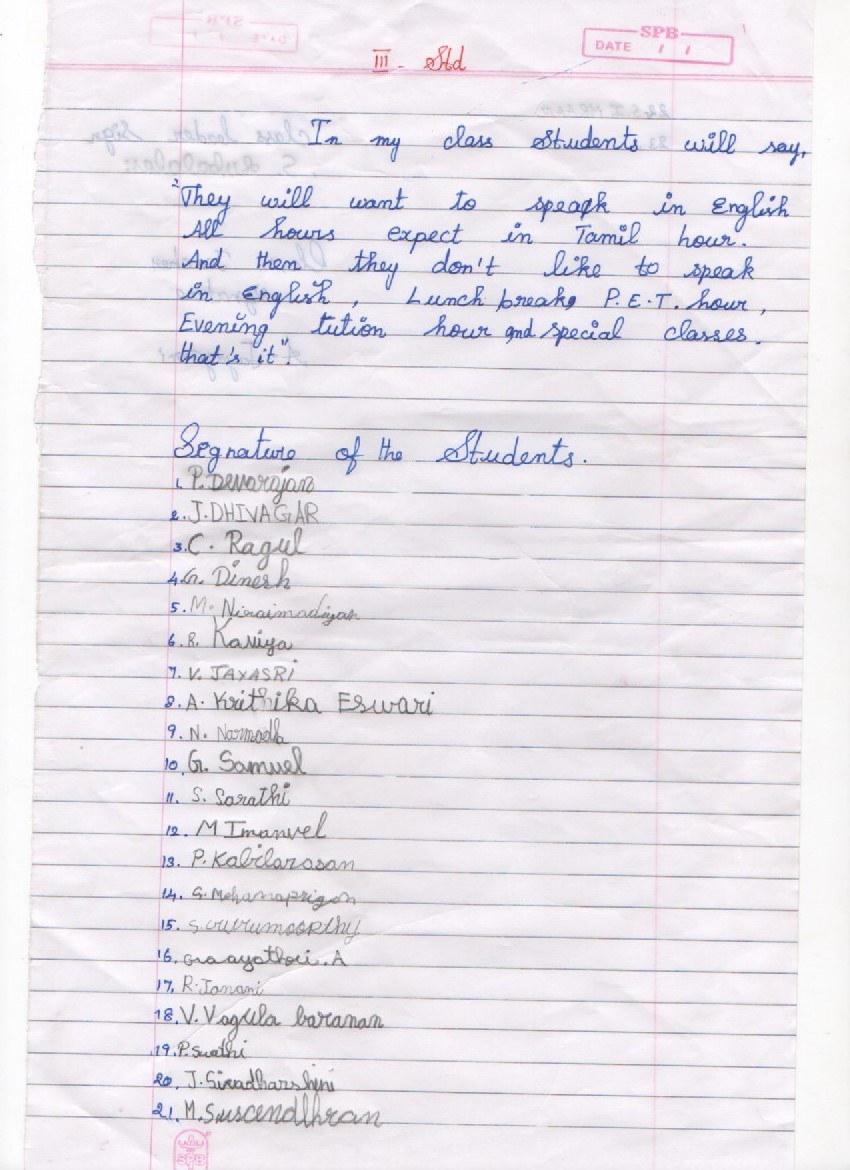 SPB
DATE / /
III - Std
In my class Students will say,
"They will want to speak in English
All hours expect in Tamil hour.
And then they don't like to speak
in English, Lunch break, P.E.T. hour,
Evening tution hour and special classes.
that's it".
Segnature of the Students.
1. P. Devarajan
2. J. DHIVAGAR
3. C. Ragul
4. G. Dinesh
5. M. Niraimadiyan
6. R. Kaviya
7. V. JAYASRI
8. A. Krithika Eswari
9. N. Narmadha
10. G. Samuel
11. S. Sarathi
12. M Imanvel
13. P. Kabilarasan
14. S. Mohanapriyan
15.
16. Gaayathri. A
17. R. Janani
18. V. Vagula baranan
19. P. Swathi
20. J. Sivadharshini
21. M.
SPB